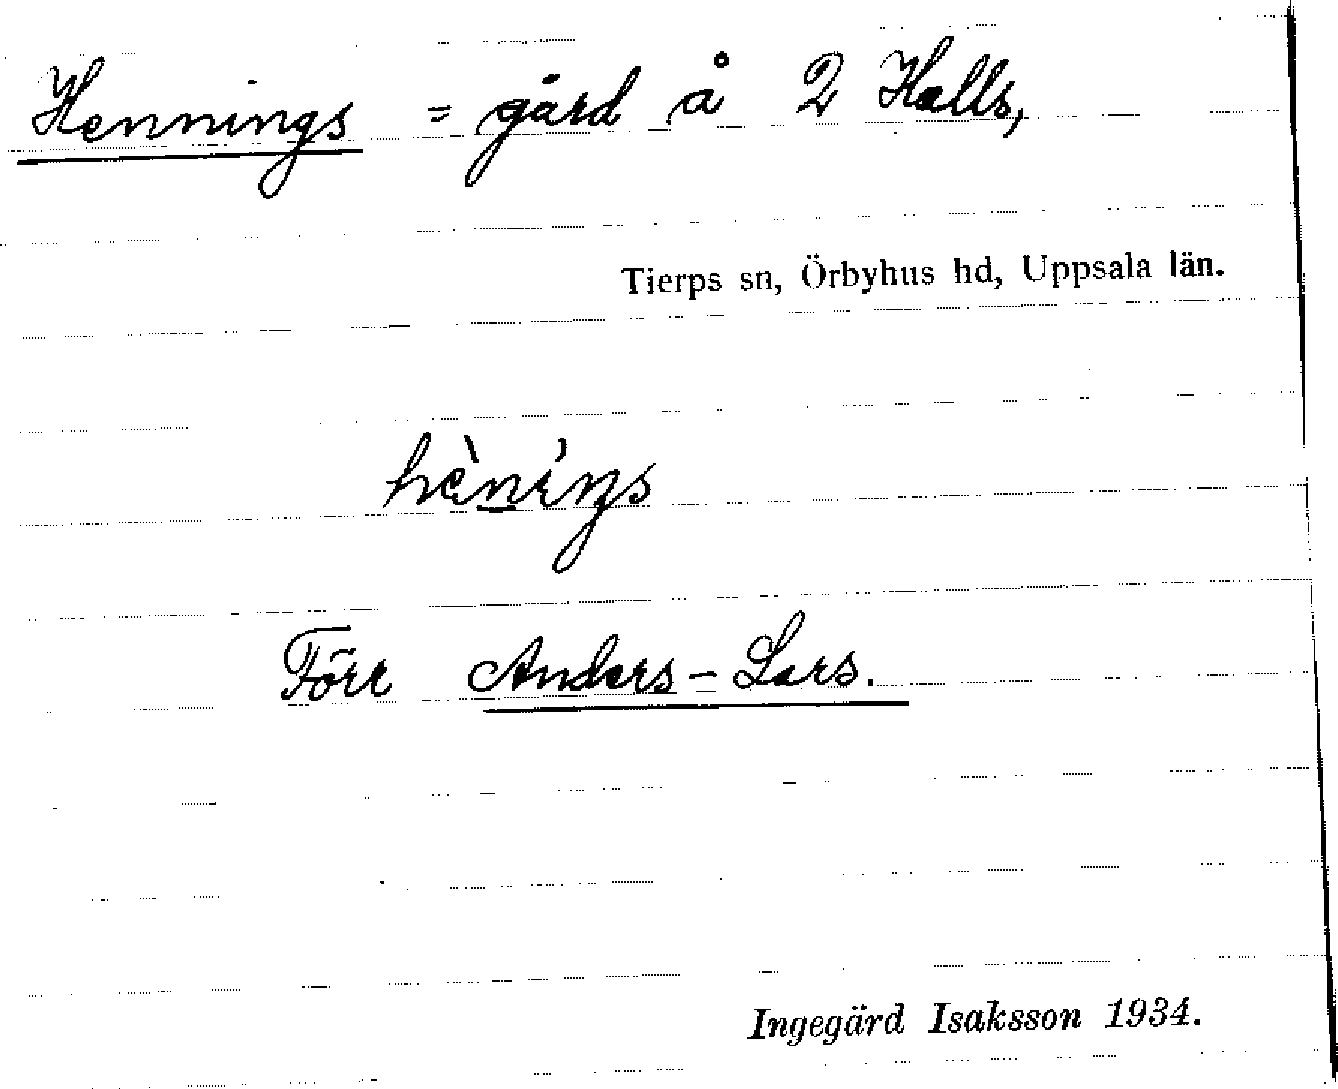 Hennings = gård å 2 Halls,
Tierps sn, Örbyhus hd, Uppsala län.
hènings
Förr Anders-Lars.
Ingegärd Isaksson 1934.